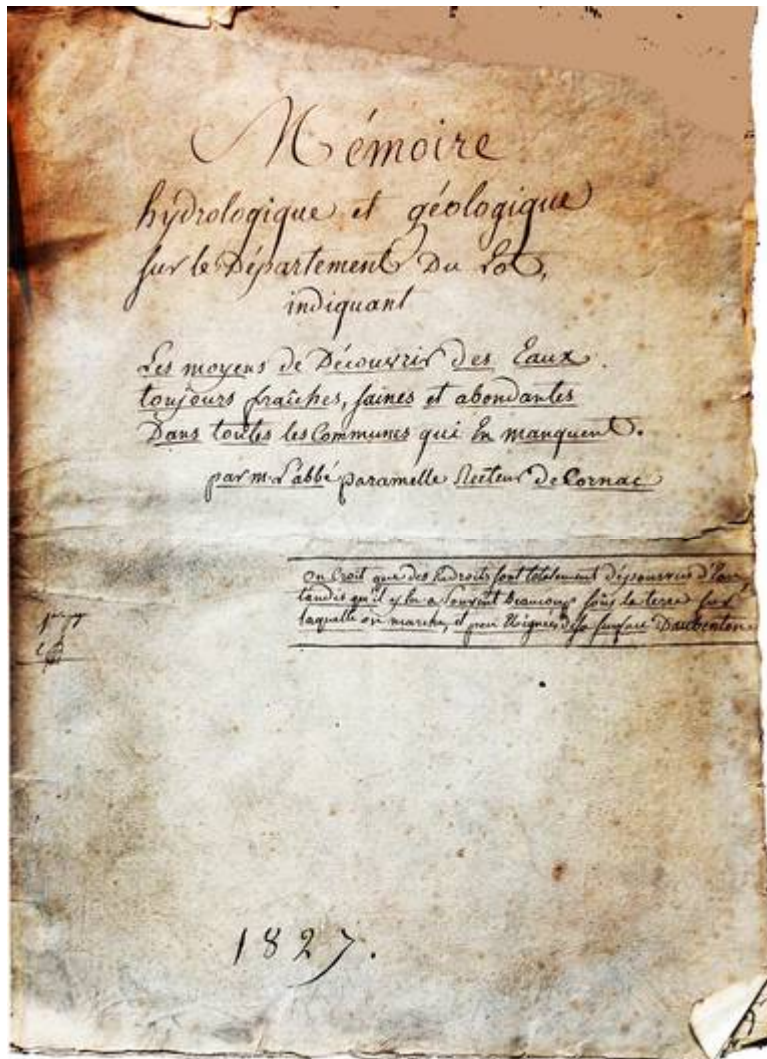 Mémoire
hydrologique et géologique
sur le Département Du Lot,
indiquant
Les moyens de Découvrir des Eaux
toujours fraîches, saines et abondantes
Dans toutes les Communes qui En manquent.
par mr L'abbé paramelle Recteur De Cornac
on Croit que des Endroits sont totalement dépourvus d'Eau,
tandis qu'il y En a Souvent Beaucoup sous la terre sur
laquelle on marche, et peu Eloignées de sa surface Daubenton
1827.